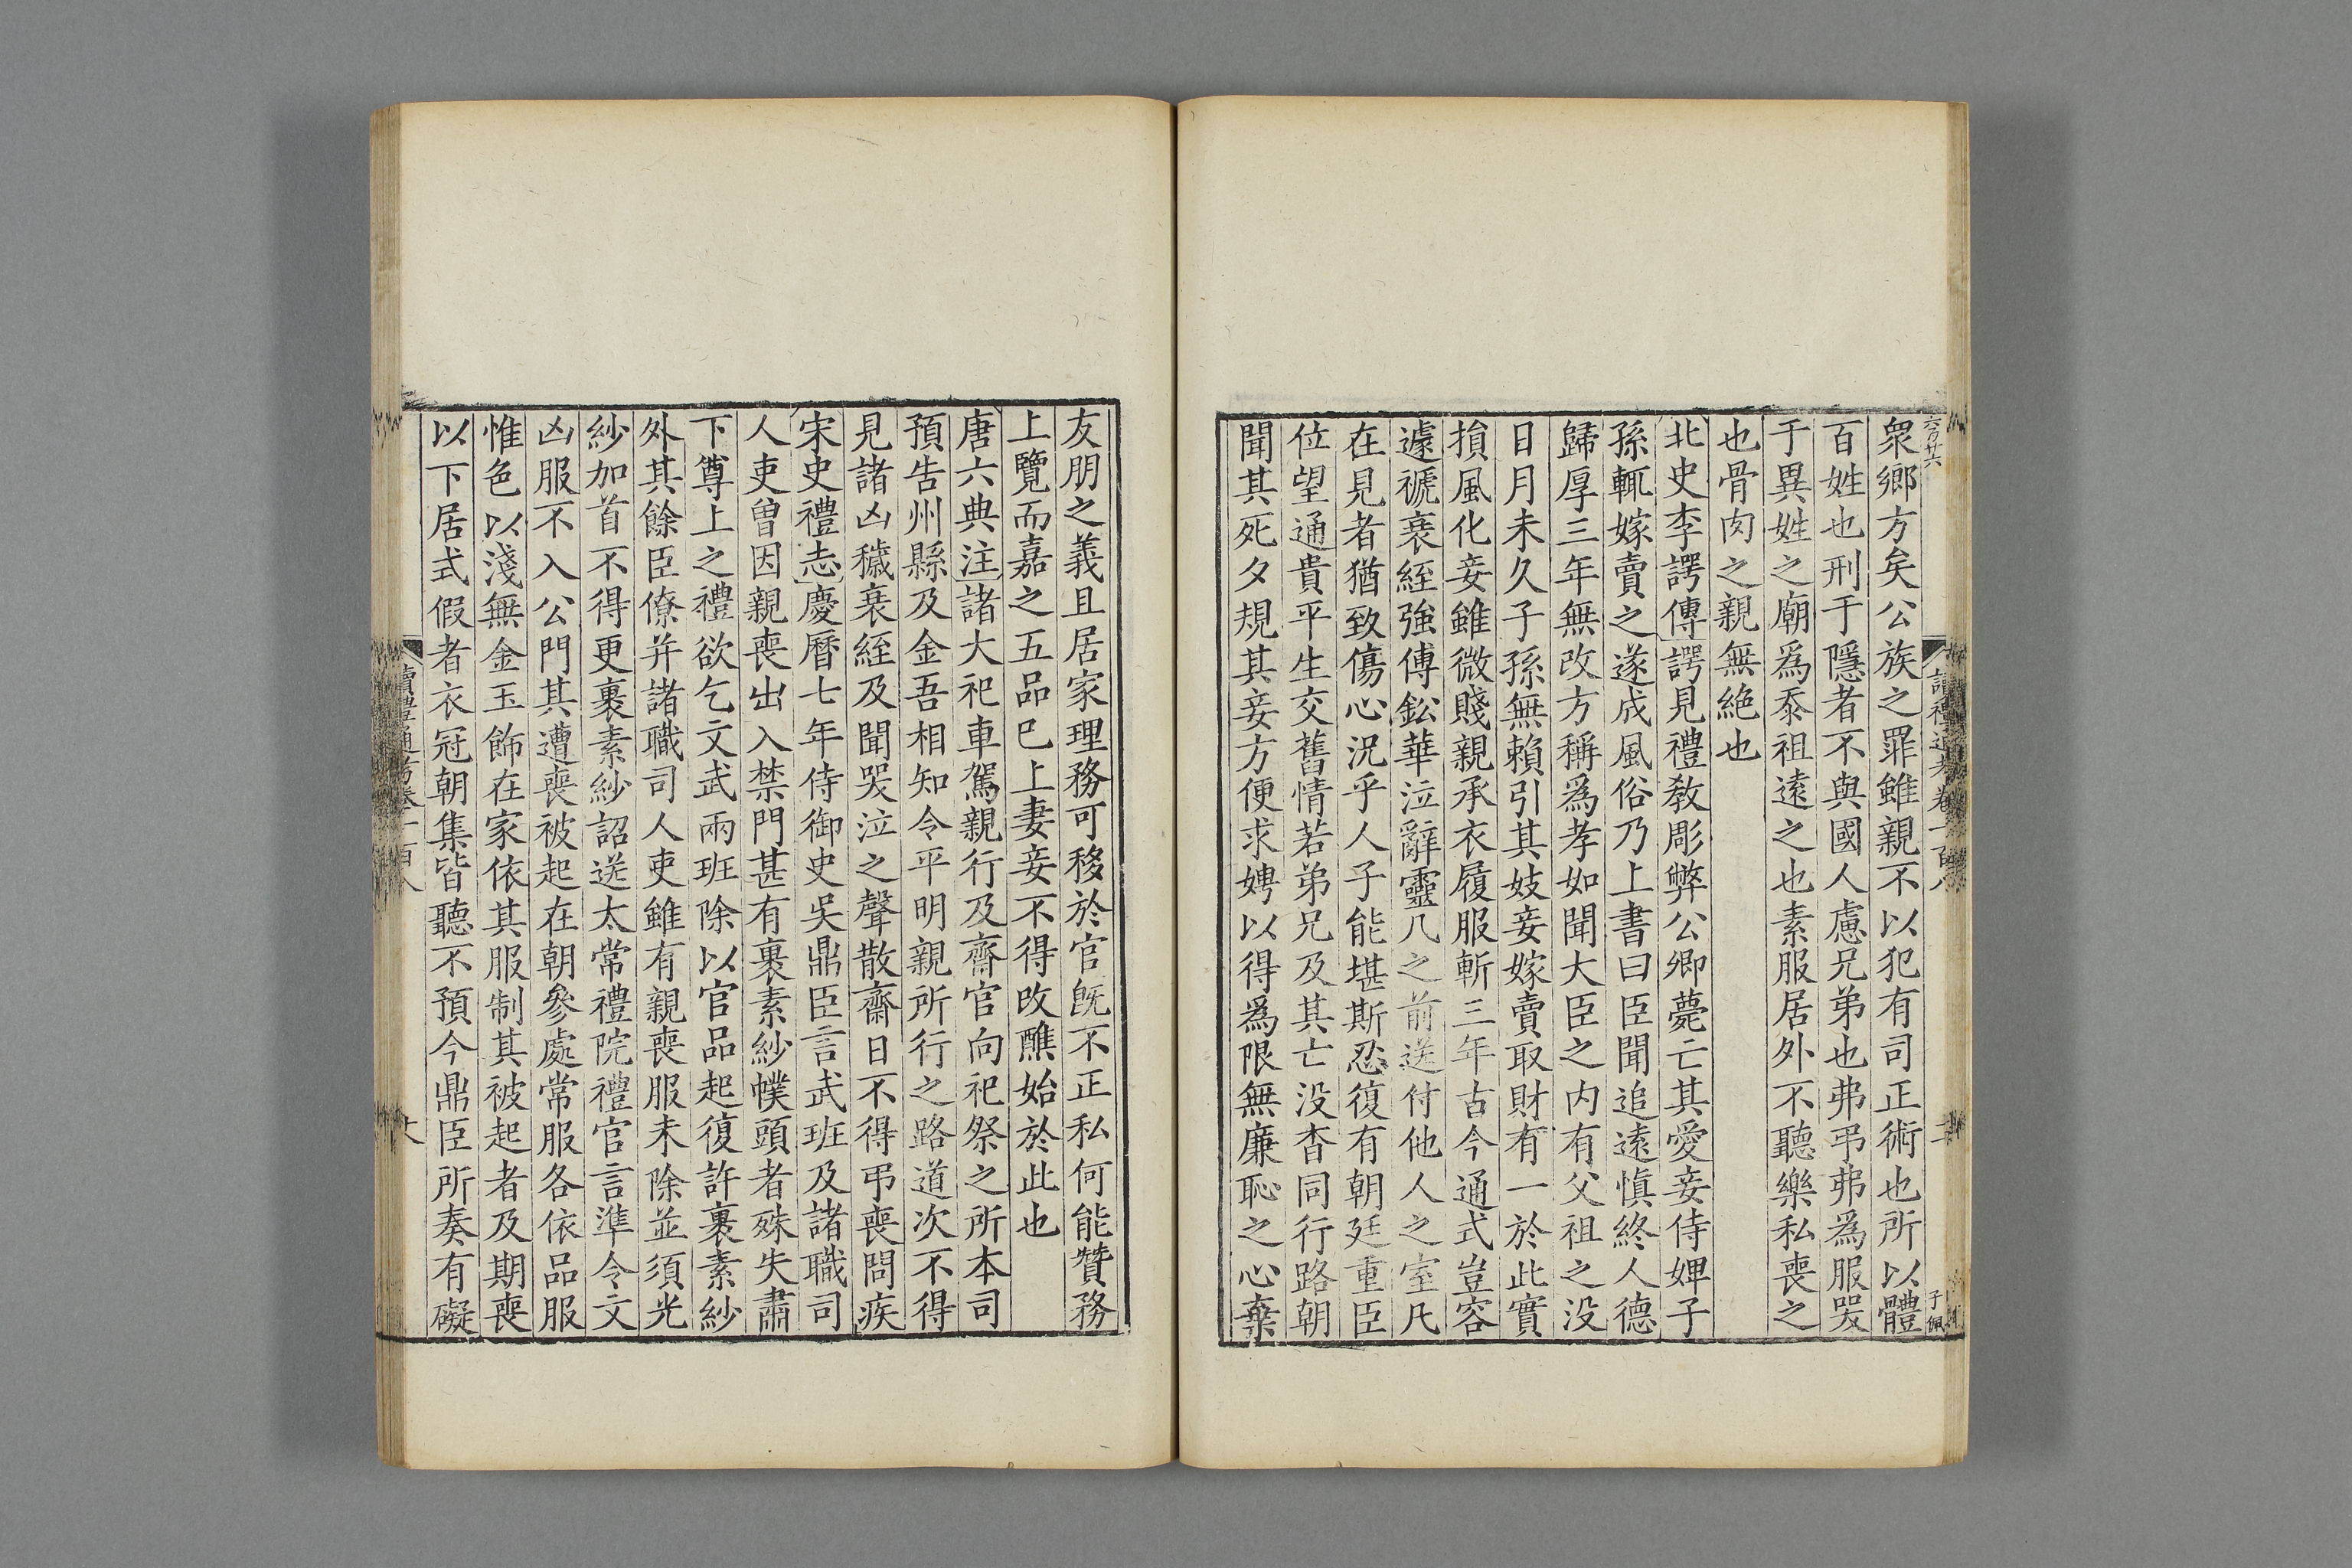 六百廿六
讀禮通考卷一百八
子佩
衆鄉方矣公族之罪雖親不以犯有司正術也所以體
百姓也刑于隱者不與國人慮兄弟也弗弔弗爲服哭
于異姓之廟爲忝祖遠之也素服居外不聽樂私喪之
也骨肉之親無絶也
北史李諤傳諤見禮教彫弊公卿薨亡其愛妾侍婢子
孫輒嫁賣之遂成風俗乃上書曰臣聞追遠慎終人德
歸厚三年無改方稱爲孝如聞大臣之内有父祖之没
日月未久子孫無賴引其妓妾嫁賣取財有一於此實
損風化妾雖微賤親承衣履服斬三年古今通式豈容
遽褫衰絰強傅鈆華泣辭靈几之前送付他人之室凡
在見者猶致傷心況乎人子能堪斯忍復有朝廷重臣
位望通貴平生交舊情若弟兄及其亡没杳同行路朝
聞其死夕規其妾方便求娉以得爲限無廉恥之心棄
友朋之義且居家理務可移於官旣不正私何能贊務
上覽而嘉之五品已上妻妾不得改醮始於此也
唐六典注諸大祀車駕親行及齋官向祀祭之所本司
預告州縣及金吾相知令平明親所行之路道次不得
見諸凶穢衰絰及聞哭泣之聲散齋日不得弔喪問疾
宋史禮志慶曆七年侍御史吳鼎臣言武班及諸職司
人吏曾因親喪出入禁門甚有裹素紗幞頭者殊失肅
下尊上之禮欲乞文武兩班除以官品起復許裹素紗
外其餘臣僚并諸職司人吏雖有親喪服未除並須光
紗加首不得更裹素紗詔送太常禮院禮官言準令文
凶服不入公門其遭喪被起在朝參處常服各依品服
惟色以淺無金玉飾在家依其服制其被起者及期喪
以下居式假者衣冠朝集皆聽不預今鼎臣所奏有礙
讀禮通考卷一百八